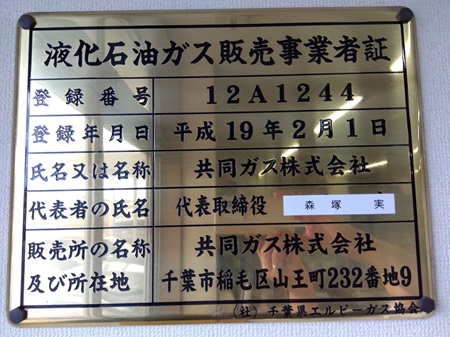 液化石油ガス販売事業者証
登録番号 12A1244
登録年月日 平成19年2月1日
氏名又は名称 共同ガス株式会社
代表者の氏名 代表取締役 森塚 実
販売所の名称 共同ガス株式会社
及び所在地 千葉市稲毛区山王町232番地9
(社)千葉県エルピーガス協会